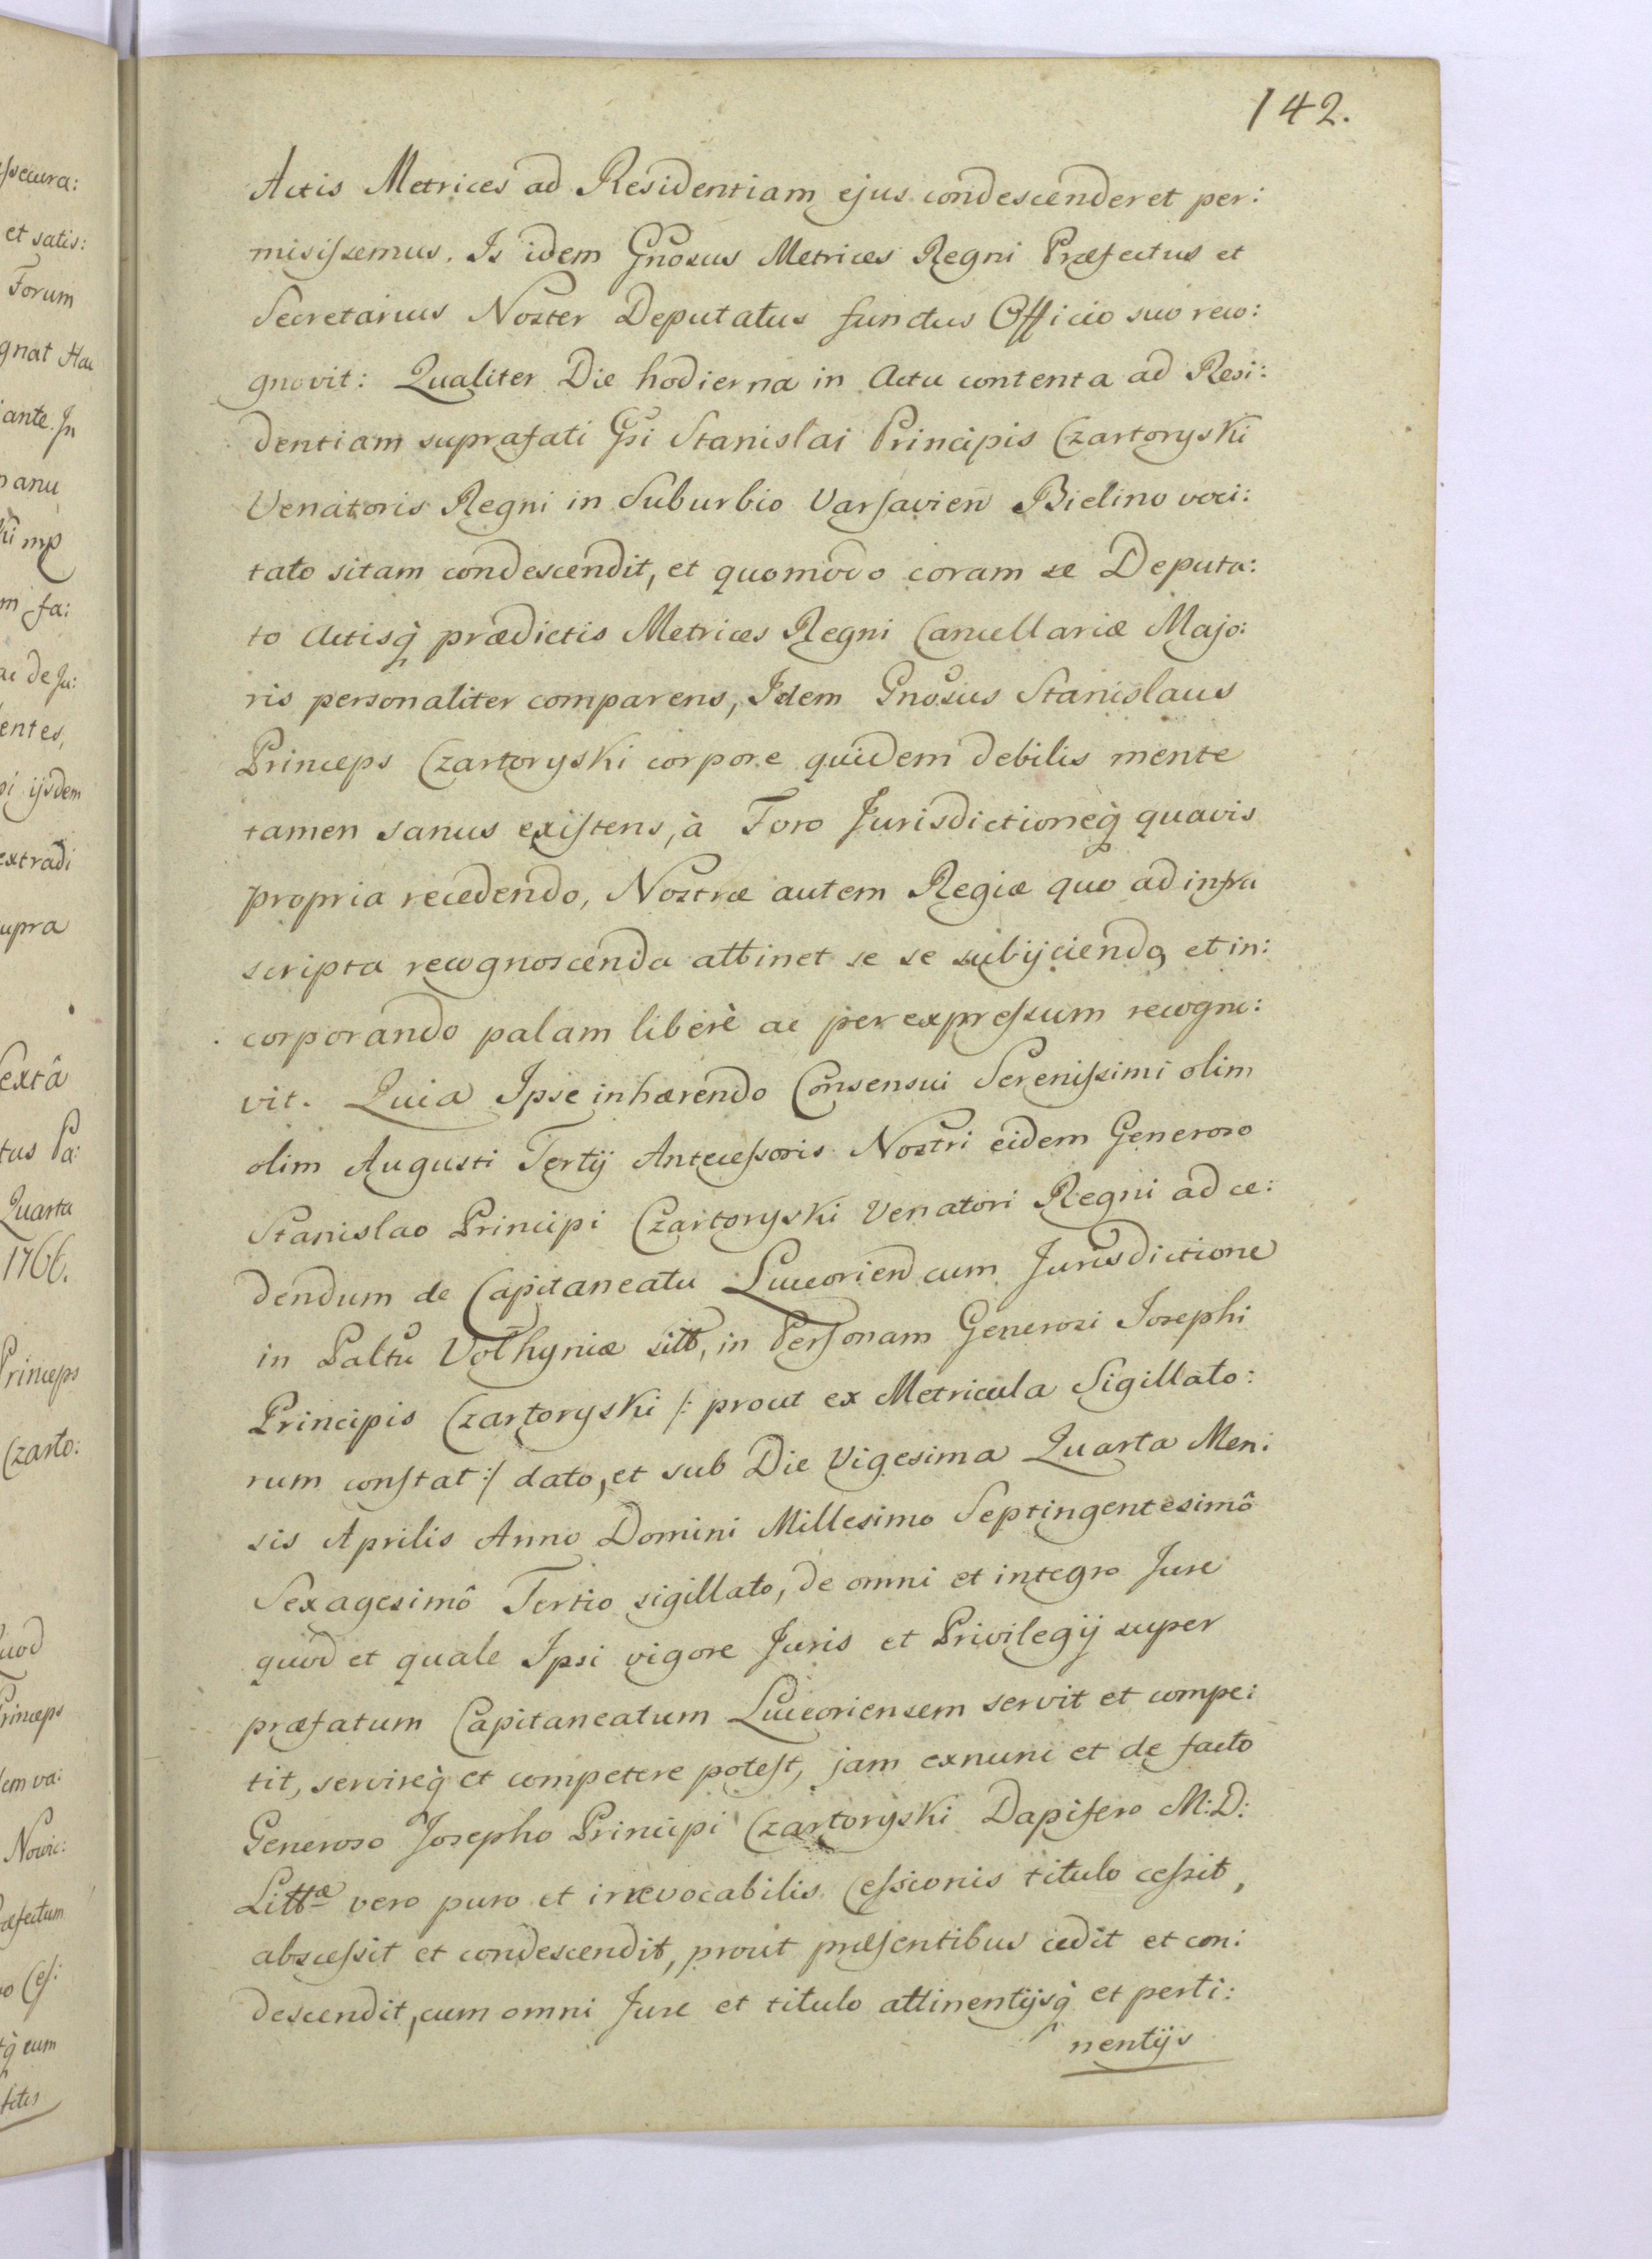 142.
Actis Metrices ad Residentiam ejus condescenderet per:
misissemus. Is idem Gnosus Metrices Regni Præfectus et
Secretarius Noster Deputatus functus Officio suo reco:
gnovit: Qualiter Die hodierna in Actu contenta ad Resi:
dentiam suprafati Gsi Stanislai Principis Czartoryski
Venatoris Regni in Suburbio Varsavien Bielino voci:
tato sitam condescendit, et quomodo coram se Deputa:
to Actisq̃ prædictis Metrices Regni Cancellariæ Majo:
ris personaliter comparens, Idem Gnosus Stanislaus
Princeps Czartoryski corpore quidem debilis mente
tamen sanus existens, à Foro Jurisdictioneq̃ quavis
propria recedendo, Nostræ autem Regiæ quo ad infra
scripta recognoscenda attinet se se subijciendo, et in:
corporando palam liberè ac per expressum recogno:
vit. Quia Ipse inhærendo Consensui Serenissimi olim
olim Augusti Tertij Antecessoris Nostri eidem Generoso
Stanislao Principi Czartoryski Venatori Regni ad ce:
dendum de Capitaneatu Luceorien cum Jurisdictione
in Paltu Volhyniæ sitto, in Personam Generosi Josephi
Principis Czartoryski /: prout ex Metricula Sigillato:
rum constat :/ dato, et sub Die Vigesima Quarta Men:
sis Aprilis Anno Domini Millesimo Septingentesimô
Sexagesimô Tertio sigillato, de omni et integro Jure
quod et quale Ipsi vigore Juris et Privilegij super
præfatum Capitaneatum Luceoriensem servit et compe:
tit, servireq̃ et competere potest, jam exnunc et de facto
Generoso Josepho Principi Czartoryski Dapifero M: D:
Littæ vero puro et irrevocabilis Cessionis titulo cessit,
abscessit et condescendit, prout præsentibus cedit et con:
descendit, cum omni Jure et titulo attinentijsq̃ et perti:
nentijs